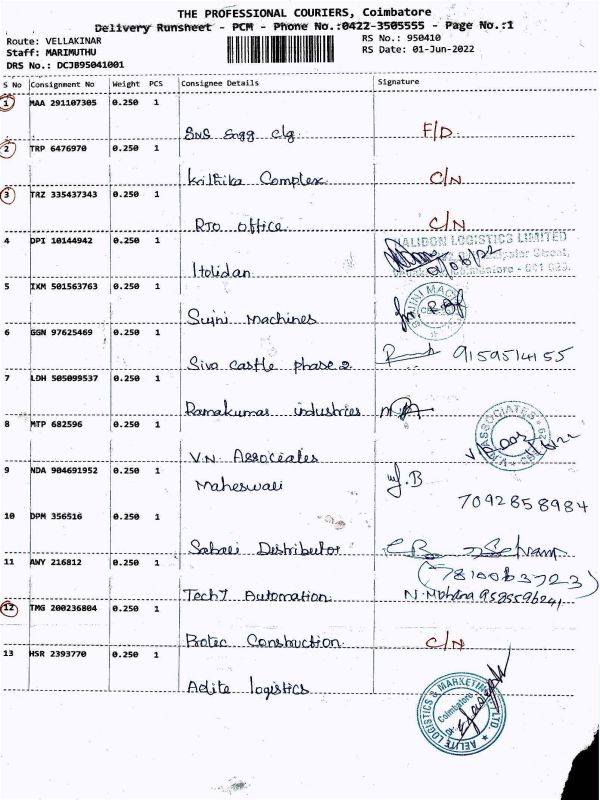 THE PROFESSIONAL COURIERS, Coimbatore
Delivery Runsheet - PCM - Phone No.:0422-3505555 - Page No.:1
Route: VELLAKINAR RS No.: 950410
Staff: MARIMUTHU RS Date: 01-Jun-2022
DRS No.: DCJB95041001
S No Consignment No Weight PCS Consignee Details Signature
1 MAA 291107305 0.250 1
SNS Engg clg F/D
2 TRP 6476970 0.250 1
Krithika Complex C/N
3 TRZ 335437343 0.250 1
RTO office C/N
4 DPI 10144942 0.250 1 LOGISTICS LIMITED
Itolidan
5 IXM 501563763 0.250 1
Sujni Machines
6 GGN 97625469 0.250 1
Siva castle phase 2 9159514155
7 LDH 505099537 0.250 1
Ramakumar industries
8 MTP 682596 0.250 1 ASSOCIATES
V.N. Associates
9 NDA 904691952 0.250 1
Maheswari 7092858984
10 DPM 356516 0.250 1
Sabari Distributor
11 AWY 216812 0.250 1
Tech7 Automation N. Mohana 9585596241
12 TMG 200236804 0.250 1
Protec Construction C/N
13 HSR 2393770 0.250 1
Aelite logistics
AELITE LOGISTICS & MARKETING PVT LTD.
Coimbatore